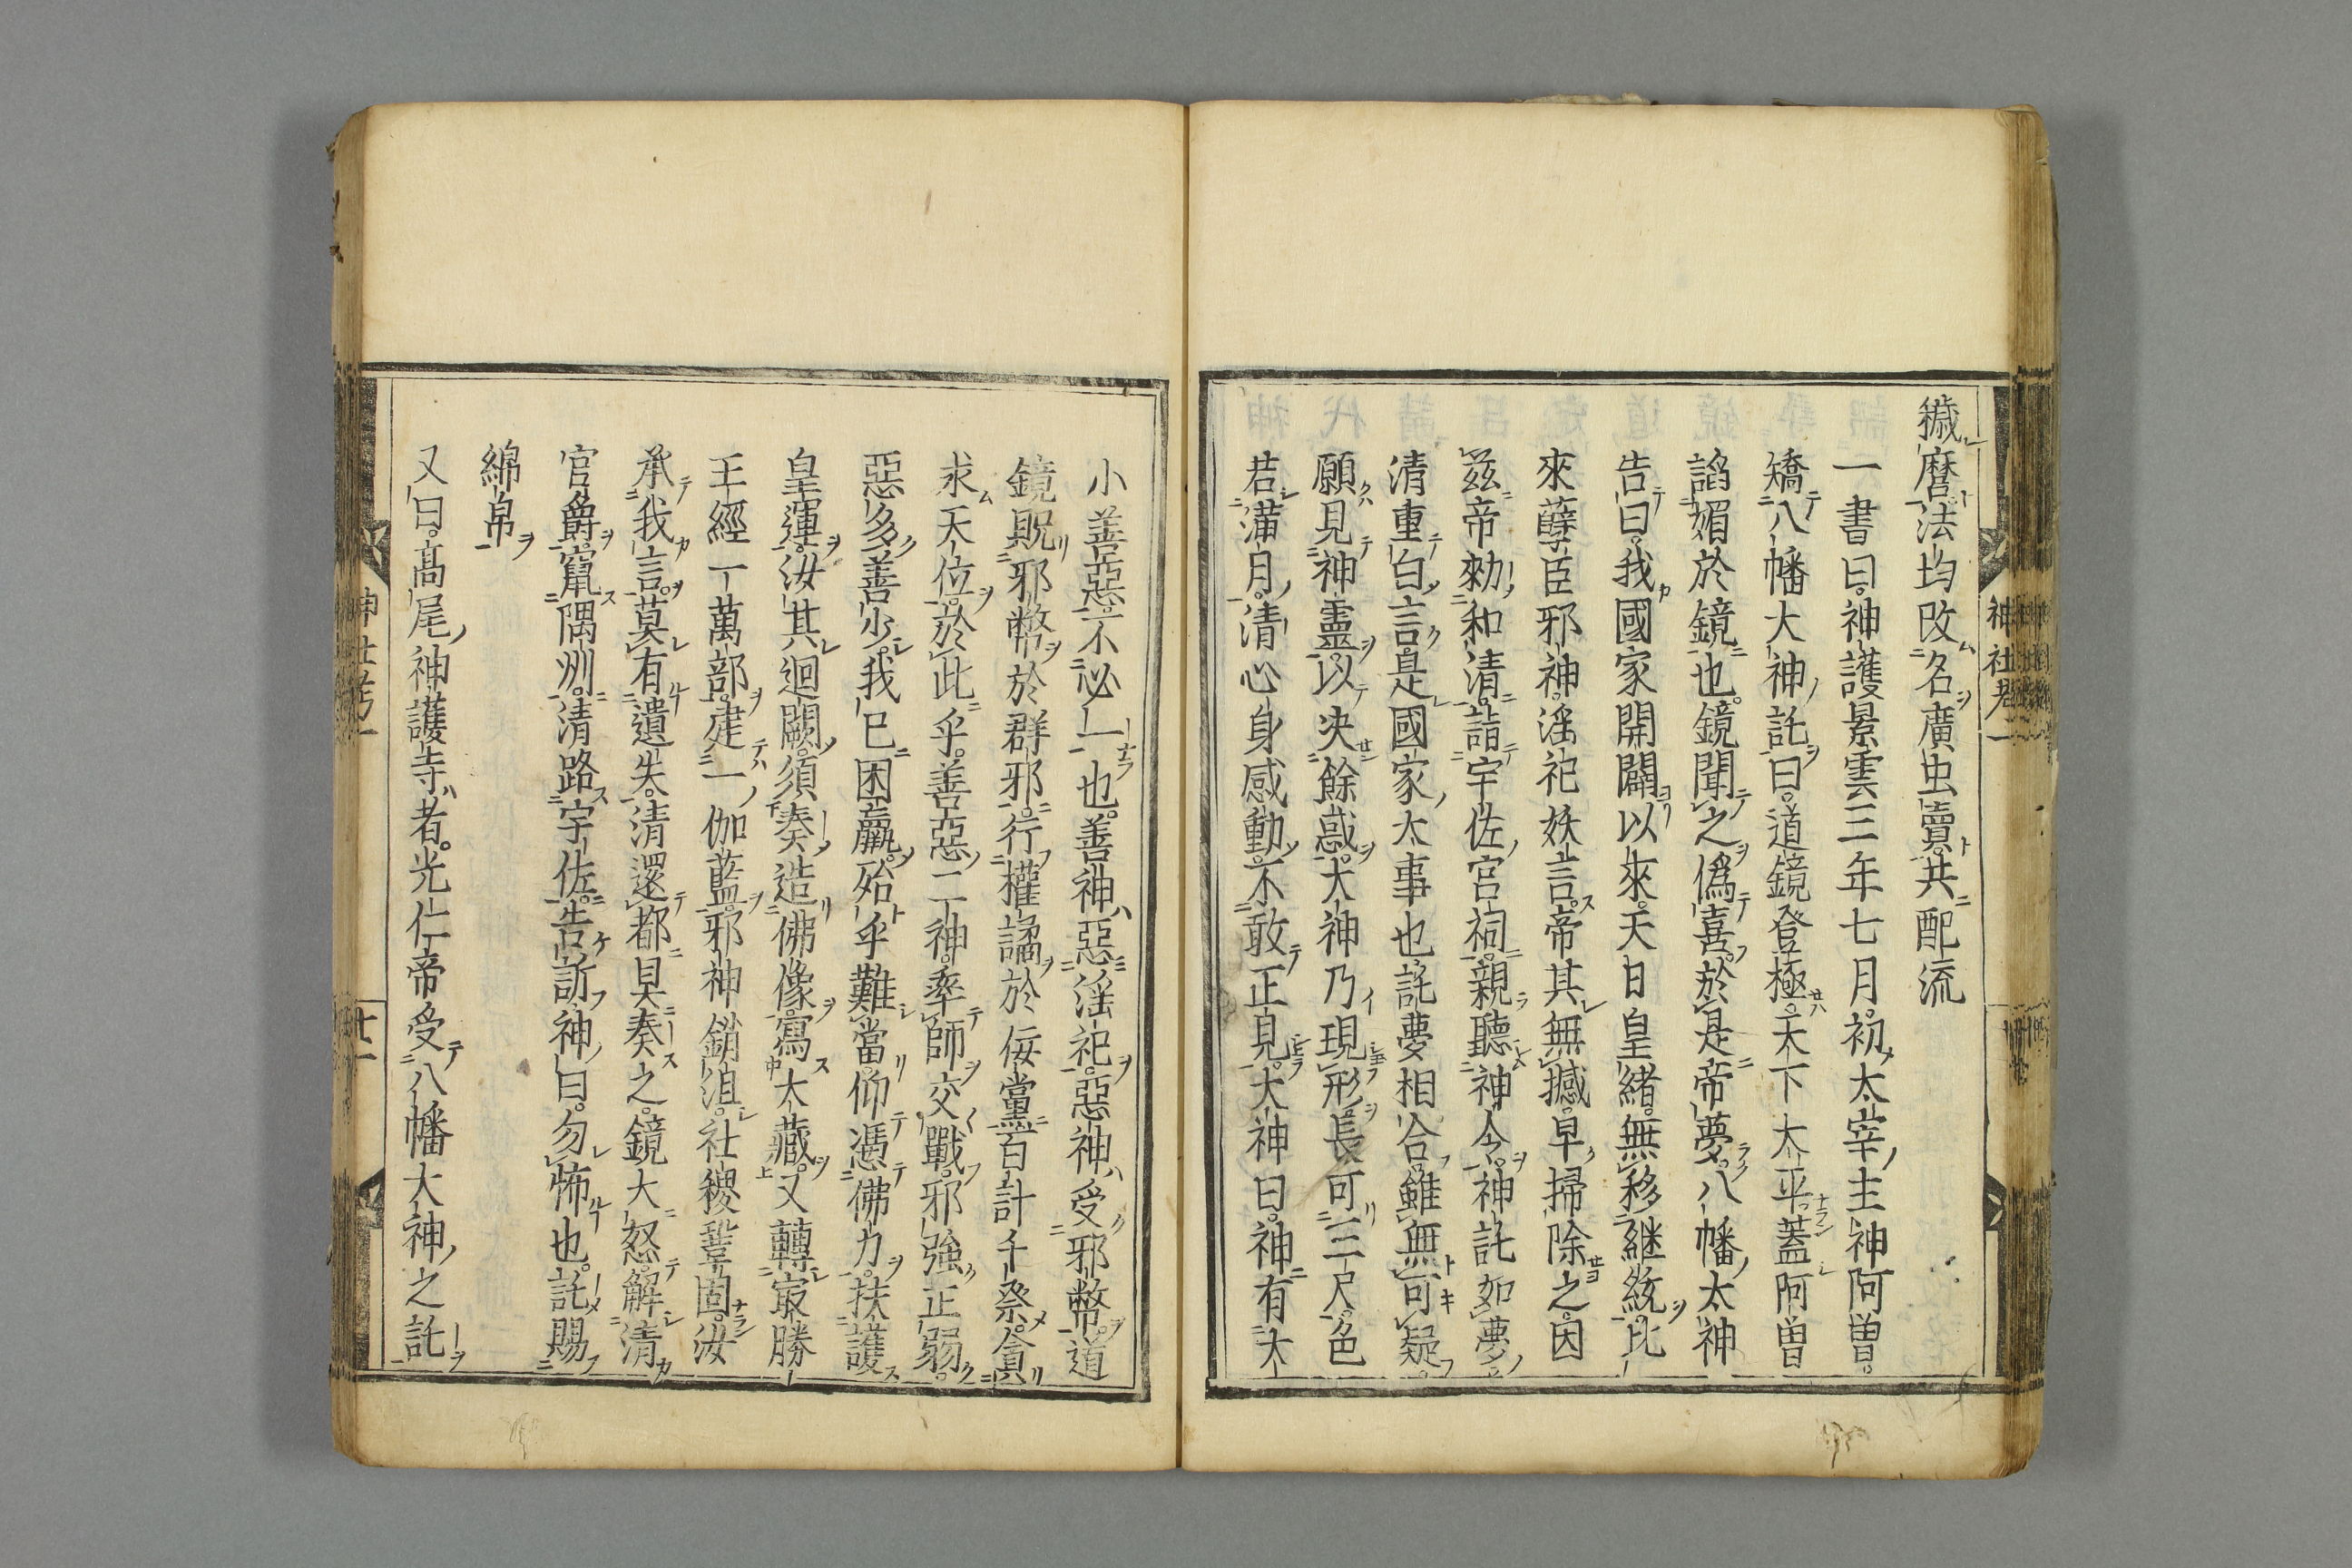 穢麿法均改名廣虫賣共配流
一書曰神護景雲三年七月初太宰主神阿曽
矯八幡大神託曰道鏡登極天下太平蓋阿曽
諂媚於鏡也鏡聞之僞喜於是帝夢八幡太神
告曰我國家開闢以來天日皇緒無移継統比
來孽臣邪神淫祀妖言帝其無撼早掃除之因
茲帝勑和清詣宇佐宮祠親聽神令神託如夢
清重白言是國家大事也託夢相合雖無可疑
願見神靈以决餘惑大神乃現形長可三尺色
若滿月清心身感動不敢正見大神曰神有大
小善惡不必一也善神惡淫祀惡神受邪幣道
鏡貺邪幣於群邪行權譎於佞黨百計千祭貪
求天位於此乎善惡二神率師交戰邪強正弱
惡多善少我已困羸殆乎難當仰憑佛力扶護
皇運汝其廻闕須奏造佛像寫大藏又轉㝡勝
王經一萬部建一伽藍邪神銷沮社稷鞏固汝
承我言莫有遺失清還都具奏之鏡大怒解清
官爵竄隅洲清路宇佐告訴神曰勿怖也託賜
綿帛
又曰髙尾神護寺者光仁帝受八幡大神之託
神社考二
神社考二
廿一